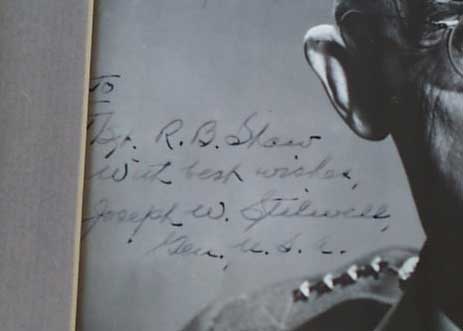 To
Dr. R. B. Shaw
With best wishes,
Joseph W. Stilwell,
Gen., U. S. A.